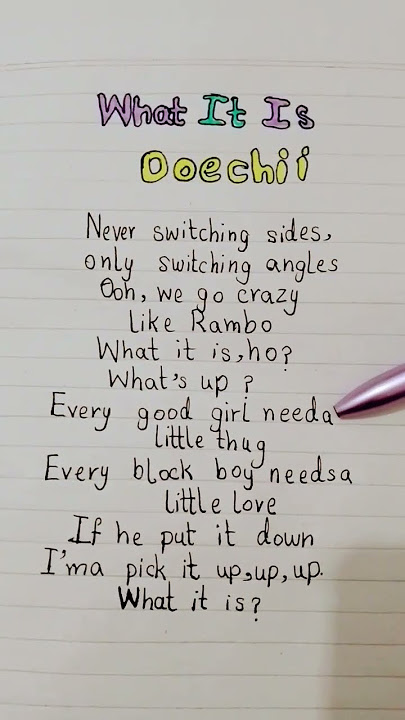 What It Is
Doechii
Never switching sides,
only switching angles
Ooh, we go crazy
like Rambo
What it is,ho?
What's up ?
Every good girl needa
little thug
Every block boy needsa
little love
If he put it down
I'ma pick it up,up,up.
What it is?